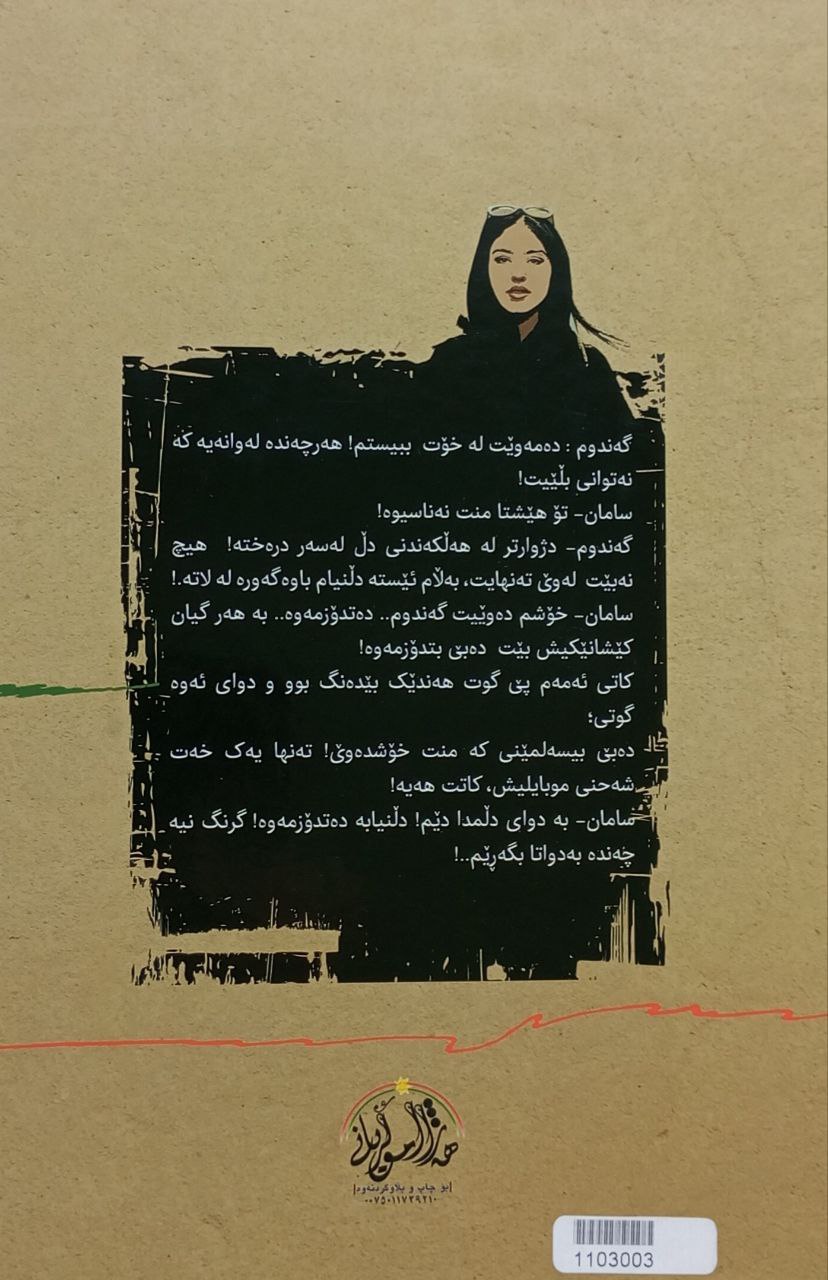 گەندوم : دەمەوێت لە خۆت ببیستم! هەرچەندە لەوانەیە کە
نەتوانی بڵێیت!
سامان- تۆ هێشتا منت نەناسیوە!
گەندوم- دژوارتر لە هەڵکەندنی دڵ لەسەر درەختە! هیچ
نەبێت لەوێ تەنهایت، بەڵام ئێستە دڵنیام باوەگەورە لە لاتە.!
سامان- خۆشم دەوێیت گەندوم.. دەتدۆزمەوە.. بە هەر گیان
کێشانێکیش بێت دەبێ بتدۆزمەوە!
کاتی ئەمەم پێ گوت هەندێک بێدەنگ بوو و دوای ئەوە
گوتی؛
دەبێ بیسەلمێنی کە منت خۆشدەوێ! تەنها یەک خەت
شەحنی موبایلیش، کاتت هەیە!
سامان- بە دوای دڵمدا دێم! دڵنیابە دەتدۆزمەوە! گرنگ نیە
چەندە بەدواتا بگەڕێم..!
بۆ چاپ و بڵاوکردنەوە
٠٠٧٥٠١١٧٣٩٢١٠
1103003